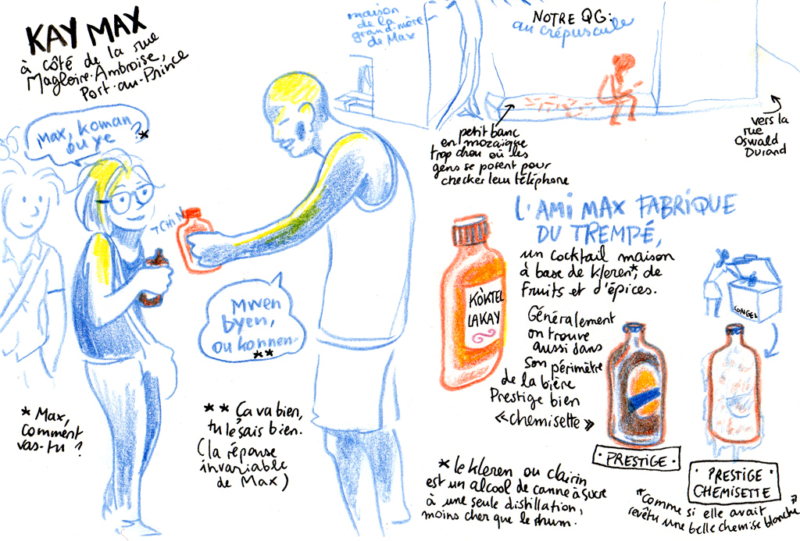 KAY MAX
à côté de la rue
Magloire-Ambroise,
Port-au-Prince
Max, koman
ou ye ?*
TCHIN
Mwen
byen,
ou konnen.
**
* Max,
comment
vas-tu ?
** Ça va bien,
tu le sais bien.
(la réponse
invariable
de Max)
maison
de la
grand-mère
de Max
NOTRE QG:
au crépuscule
petit banc
en mozaïque
trop chou où les
gens se posent pour
checker leur téléphone
vers la
rue
Oswald
Durand
L'AMI MAX FABRIQUE
DU TREMPÉ,
un cocktail maison
à base de kleren*, de
fruits et d'épices.
KÒKTEL
LAKAY
Généralement
on trouve
aussi dans
son périmètre
de la bière
Prestige bien
«chemisette»
CONGEL
PRESTIGE
PRESTIGE
CHEMISETTE
"Comme si elle avait
revêtu une belle chemise blanche"
* le kleren ou clairin
est un alcool de canne à sucre
à une seule distillation,
moins cher que le rhum.